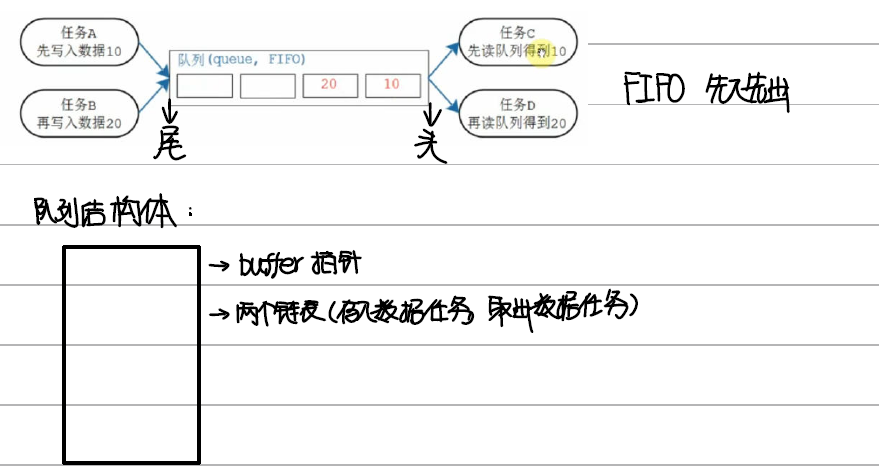 任务A
先写入数据10
任务B
再写入数据20
队列(queue, FIFO)
20 10
任务C
先读队列得到10
任务D
再读队列得到20
尾
头
FIFO 先入先出
队列结构体：
→ buffer 指针
→ 两个链表(存入数据任务, 取出数据任务)